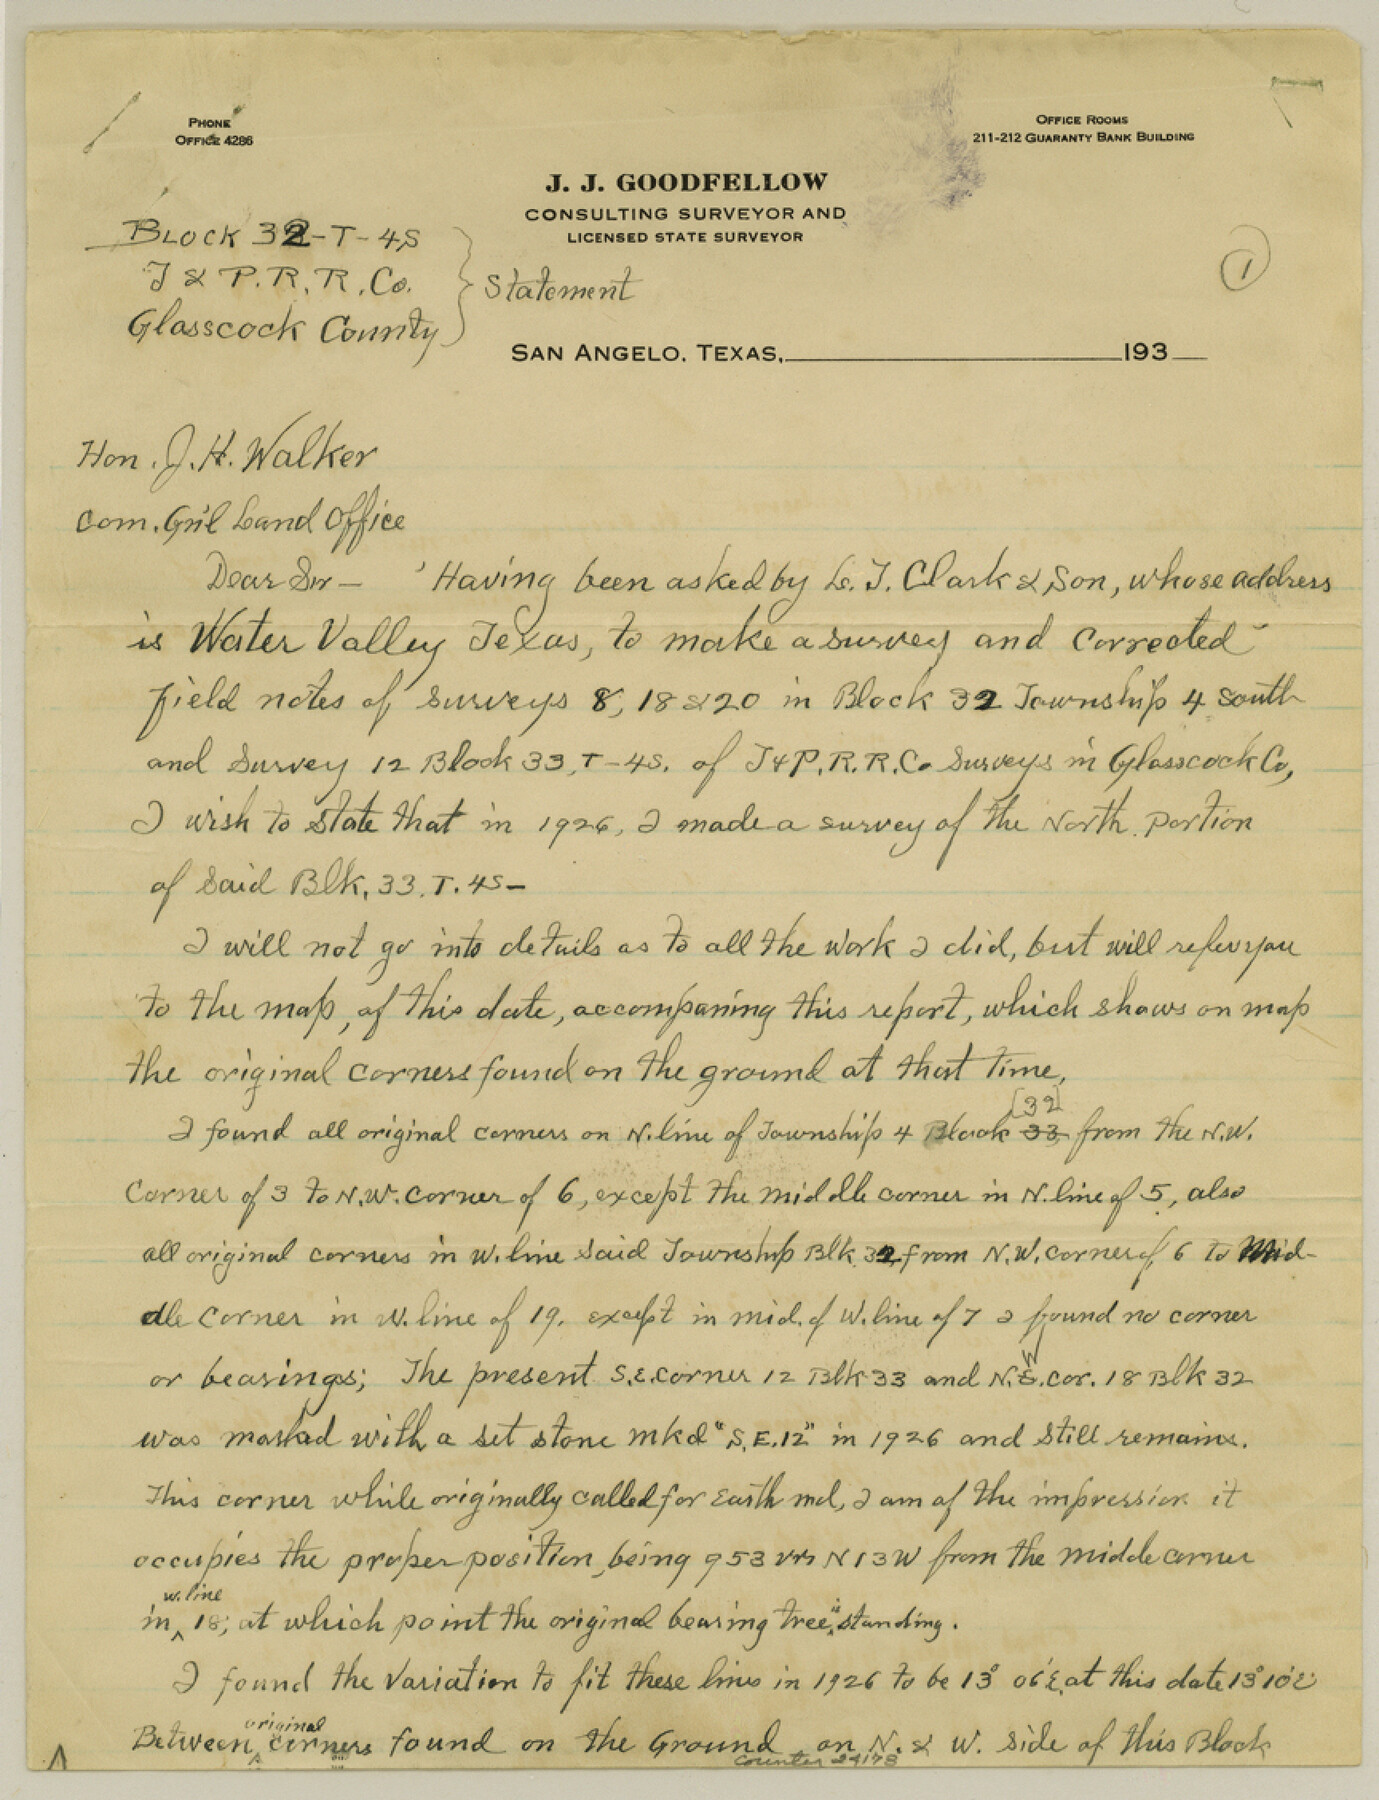 PHONE
OFFICE 4286
OFFICE ROOMS
211-212 GUARANTY BANK BUILDING
J. J. GOODFELLOW
CONSULTING SURVEYOR AND
LICENSED STATE SURVEYOR
Block 32-T-4S
T & P. R. R. Co.
Glasscock County } Statement
1
SAN ANGELO, TEXAS, 193
Hon. J. H. Walker
Com. Gn'l Land Office
Dear Sir — Having been asked by L. T. Clark & Son, whose address
is Water Valley Texas, to make a survey and corrected
field notes of surveys 8, 18 & 20 in Block 32 Township 4 South
and Survey 12 Block 33, T-4S. of T & P. R. R. Co Surveys in Glasscock Co,
I wish to state that in 1926, I made a survey of the North portion
of said Blk. 33. T. 4S—
I will not go into details as to all the work I did, but will refer you
to the map, of this date, accompaning this report, which shows on map
the original corners found on the ground at that time,
[32]
I found all original corners on N. line of Township 4 Block 33 from the N.W.
Corner of 3 to N.W. corner of 6, except the middle corner in N. line of 5, also
all original corners in W. line said Township Blk 32, from N.W. corner of 6 to Mid-
dle corner in W. line of 19. except in mid. of W. line of 7 I found no corner
or bearings; The present S.E. corner 12 Blk 33 and N.W. cor. 18 Blk 32
was marked with a set stone mkd "S.E.12" in 1926 and still remains.
This corner while originally called for Earth md, I am of the impression it
occupies the proper position, being 953 vrs N 13 W from the middle corner
w. line
in ^ 18; at which point the original bearing tree is standing.
I found the Variation to fit these lines in 1926 to be 13° 06' E, at this date 13° 10' E
original
Between ^ corners found on the Ground on N. & W. side of this Block
counter 24178